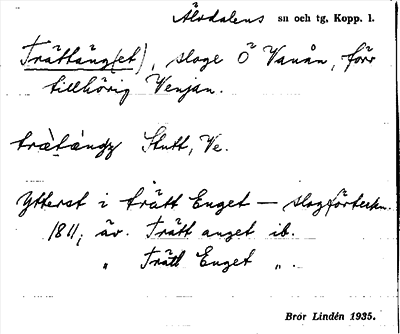 Älvdalens sn och tg, Kopp. l.
Trättäng(et), sloge Ö Vanån, förr
tillhörig Venjan.
Stutt, Ve.
Ytterst i trätt Enget — slogförteckn.
1811; äv. Trätt anget ib.
" Trätt Enget ".
Brór Lindén 1935.